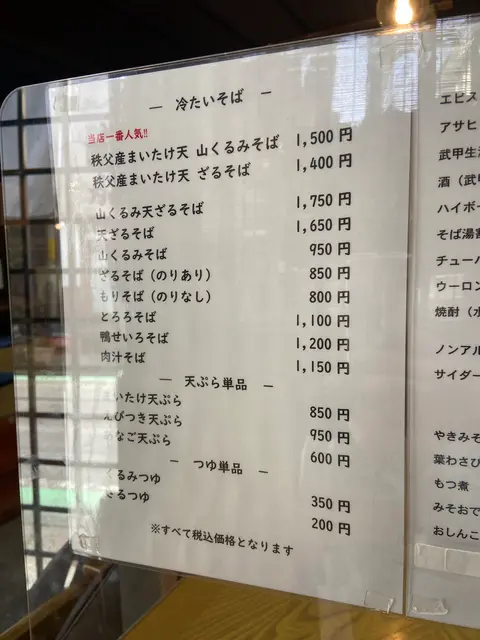 ― 冷たいそば ―
当店一番人気!!
秩父産まいたけ天 山くるみそば 1,500 円
秩父産まいたけ天 ざるそば 1,400 円
山くるみ天ざるそば 1,750 円
天ざるそば 1,650 円
山くるみそば 950 円
ざるそば（のりあり） 850 円
もりそば（のりなし） 800 円
とろろそば 1,100 円
鴨せいろそば 1,200 円
肉汁そば 1,150 円
― 天ぷら単品 ―
まいたけ天ぷら 850 円
えびつき天ぷら 950 円
あなご天ぷら 600 円
― つゆ単品 ―
くるみつゆ 350 円
ざるつゆ 200 円
※すべて税込価格となります
エビス
アサヒ
武甲生
酒（武
ハイボー
そば湯
チューハ
ウーロン
焼酎（水
ノンアル
サイダー
やきみそ
葉わさび
もつ煮
みそおで
おしんこ